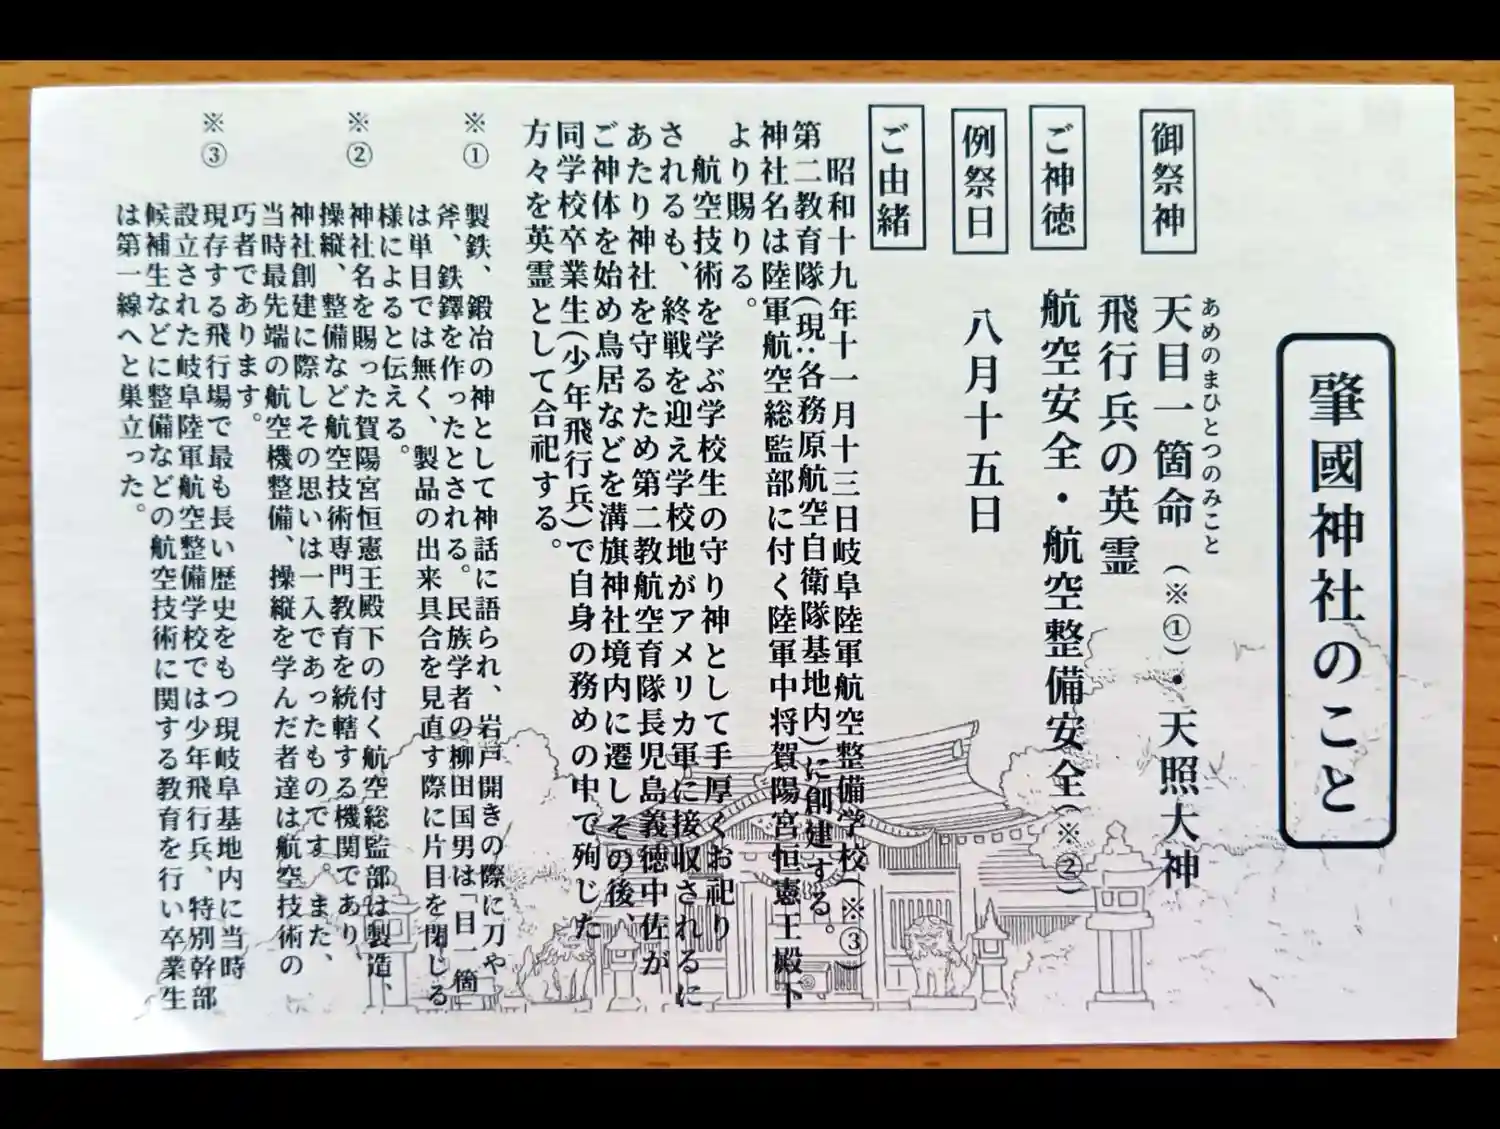 肇國神社のこと
御祭神
あめのまひとつのみこと
天目一箇命（※①）・天照大神
飛行兵の英霊
ご神徳
航空安全・航空整備安全（※②）
例祭日
八月十五日
ご由緒
昭和十九年十一月十三日岐阜陸軍航空整備学校（※③）
第二教育隊（現：各務原航空自衛隊基地内）に創建する。
神社名は陸軍航空総監部に付く陸軍中将賀陽宮恒憲王殿下
より賜りる。
航空技術を学ぶ学校生の守り神として手厚くお祀り
されるも、終戦を迎え学校地がアメリカ軍に接収されるに
あたり神社を守るため第二教航空育隊長児島義徳中佐が
ご神体を始め鳥居などを溝旗神社境内に遷しその後、
同学校卒業生（少年飛行兵）で自身の務めの中で殉じた
方々を英霊として合祀する。
※①
製鉄、鍛冶の神として神話に語られ、岩戸開きの際に刀や
斧、鉄鐸を作ったとされる。民族学者の柳田国男は「目一箇
は単目では無く、製品の出来具合を見直す際に片目を閉じる
様によると伝える。
※②
神社名を賜った賀陽宮恒憲王殿下の付く航空総監部は製造、
操縦、整備など航空技術専門教育を統轄する機関であり、
神社創建に際しその思いは一入であったものです。また、
当時最先端の航空機整備、操縦を学んだ者達は航空技術の
巧者であります。
※③
現存する飛行場で最も長い歴史をもつ現岐阜基地内に当時
設立された岐阜陸軍航空整備学校では少年飛行兵、特別幹部
候補生などに整備などの航空技術に関する教育を行い卒業生
は第一線へと巣立った。